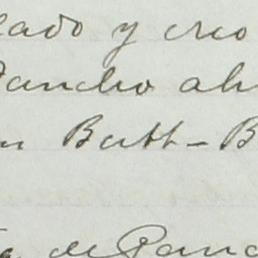 lado y creo
Pancho ah
n Batt - B
de Panc